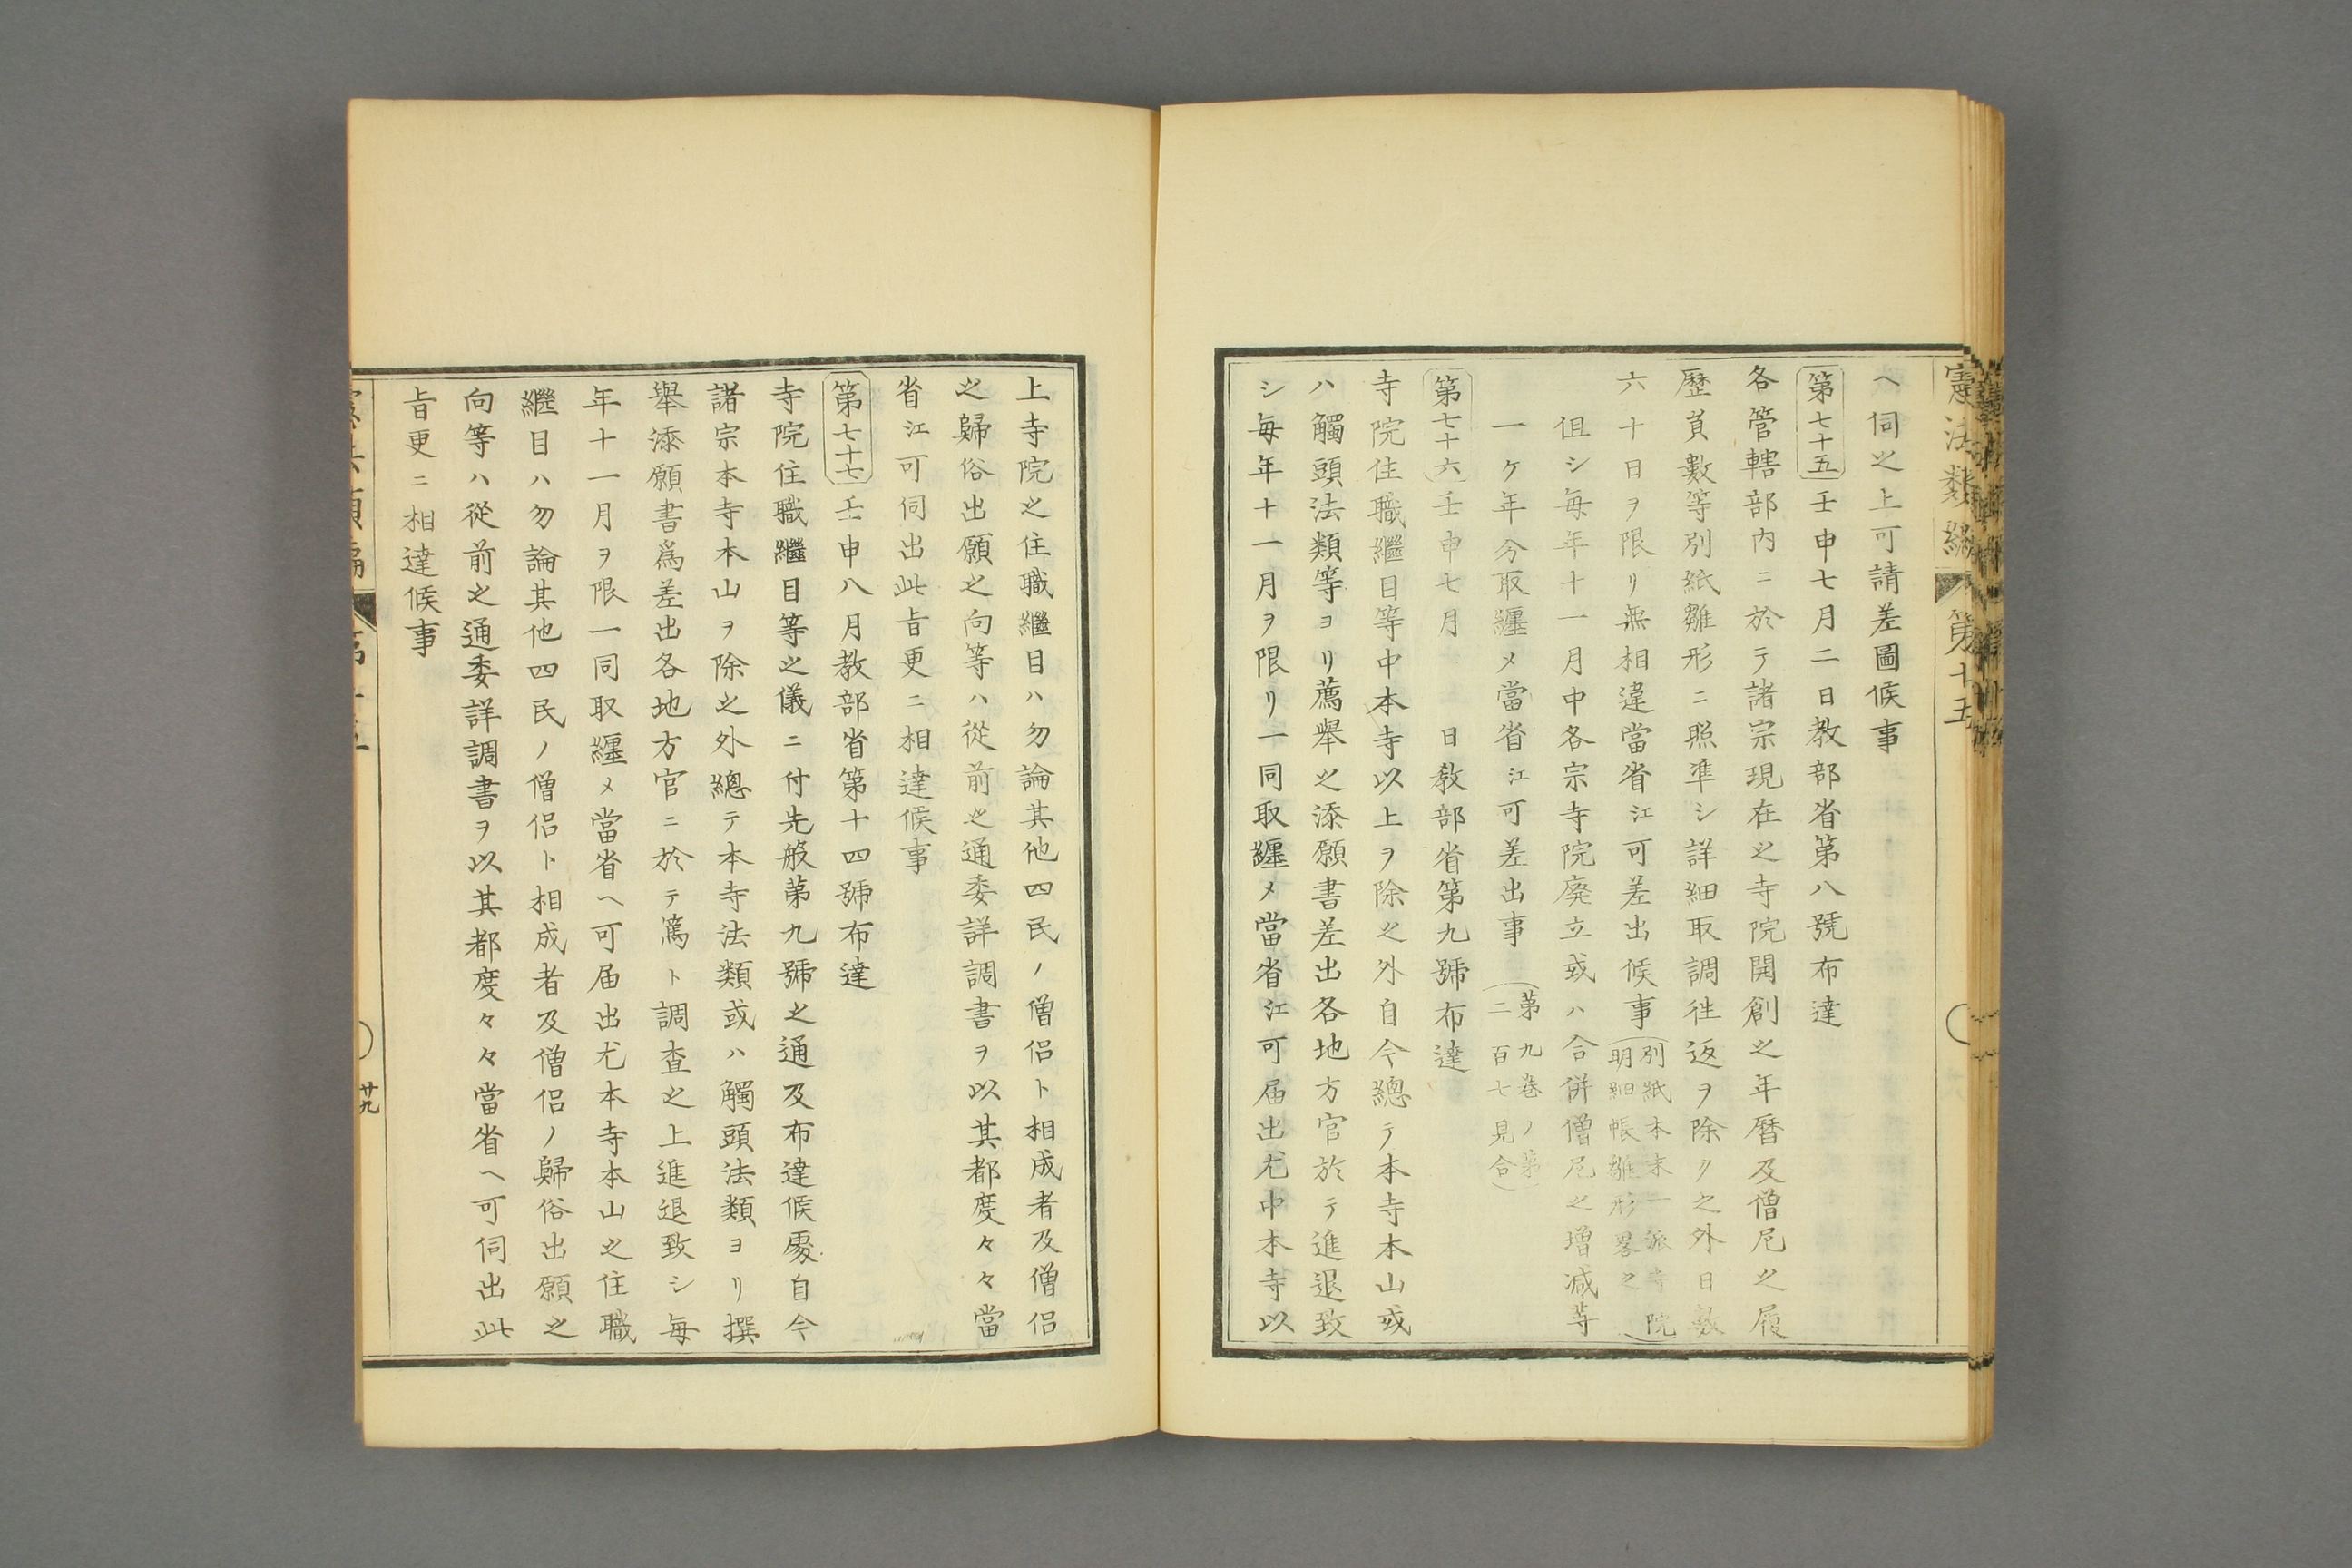 憲法類編 第十五
ヘ伺之上可請差圖候事
第七十五 壬申七月二日教部省第八號布達
各管轄部內ニ於テ諸宗現在之寺院開創之年曆及僧尼之履
歷員數等別紙雛形ニ照準シ詳細取調徃返ヲ除ク之外日數
六十日ヲ限リ無相違當省江可差出候事(別紙本末一派寺院
明細帳雛形畧之)
但シ每年十一月中各宗寺院廢立或ハ合併僧尼之增减等
一ケ年分取纒メ當省江可差出事(第九卷ノ第
二百七見合)
第七十六 壬申七月 日教部省第九號布達
寺院住職繼目等中本寺以上ヲ除之外自今總テ本寺本山或
ハ觸頭法類等ヨリ薦擧之添願書差出各地方官於テ進退致
シ每年十一月ヲ限リ一同取纒メ當省江可届出尤中本寺以
上寺院之住職繼目ハ勿論其他四民ノ僧侶ト相成者及僧侶
之歸俗出願之向等ハ從前之通委詳調書ヲ以其都度々々當
省江可伺出此旨更ニ相達候事
第七十七 壬申八月教部省第十四號布達
寺院住職繼目等之儀ニ付先般第九號之通及布達候處自今
諸宗本寺本山ヲ除之外總テ本寺法類或ハ觸頭法類ヨリ撰
擧添願書爲差出各地方官ニ於テ篤ト調查之上進退致シ每
年十一月ヲ限一同取纒メ當省ヘ可届出尤本寺本山之住職
繼目ハ勿論其他四民ノ僧侶ト相成者及僧侶ノ歸俗出願之
向等ハ從前之通委詳調書ヲ以其都度々々當省ヘ可伺出此
旨更ニ相達候事
廿九